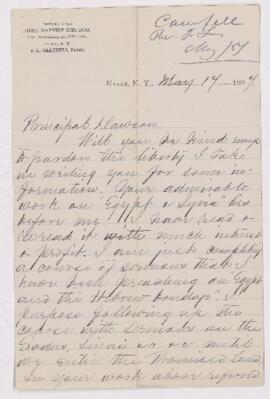 Campbell
Rev J L
May /87
FIRST BAPTIST CHURCH
J. L. CAMPBELL, Pastor.
NYACK, N. Y., May 14, 1887.
Principal Dawson,
Will you be kind enough
to pardon the liberty I take
in writing you for some in-
formation. Your admirable
work on Egypt & Syria lies
before me. I have read &
re-read it with much interest
& profit. I am just completing
a course of sermons that I
have been preaching on Egypt
and the Hebrew bondage. I
purpose following up the
course with sermons on the
Exodus, Sinai &c &c until
we enter the Promised Land.
In your work above referred